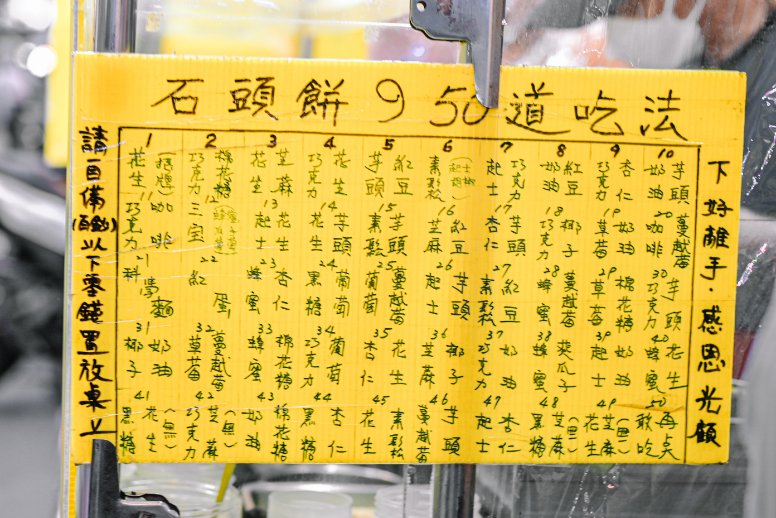 石頭餅9 50道吃法
請自備(百鈔)以下零錢置放桌上
1 花生 招牌
2 巧克力 棉花糖
3 花生 芝麻
4 巧克力 花生
5 芋頭 紅豆
6 素鬆
7 起士 巧克力
8 奶油 紅豆
9 巧克力 杏仁
10 奶油 芋頭
11 巧克力 咖啡
12 三寶
13 起士 花生
14 花生 芋頭
15 素鬆 芋頭
16 芝麻 紅豆
17 杏仁 芋頭
18 巧克力 椰子
19 草莓 奶油
20 咖啡 蔓越莓
21 科學麵
22 紅蛋
23 蜂蜜 杏仁
24 黑糖 葡萄
25 葡萄 蔓越莓
26 起士 芋頭
27 素鬆 紅豆
28 蜂蜜 蔓越莓
29 草莓 棉花糖
30 巧克力 芋頭
31 椰子 奶油
32 草莓 蔓越莓
33 蜂蜜 棉花糖
34 巧克力 葡萄
35 杏仁 花生
36 芝麻 椰子
37 巧克力 奶油
38 蜂蜜 葵瓜子
39 起士 奶油
40 蜂蜜 花生
41 黑糖 花生(無)
42 巧克力 芝麻(無)
43 奶油 棉花糖
44 黑糖 杏仁
45 花生 素鬆
46 蔓越莓 芋頭
47 起士 杏仁
48 黑糖 芝麻(無)
49 花生 芝麻(無)
50 敢吃 再点
下好離手·感恩光顧